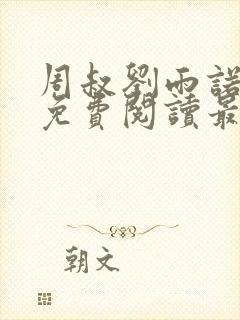 周叔劉雨諾
免費閱讀最
朝文